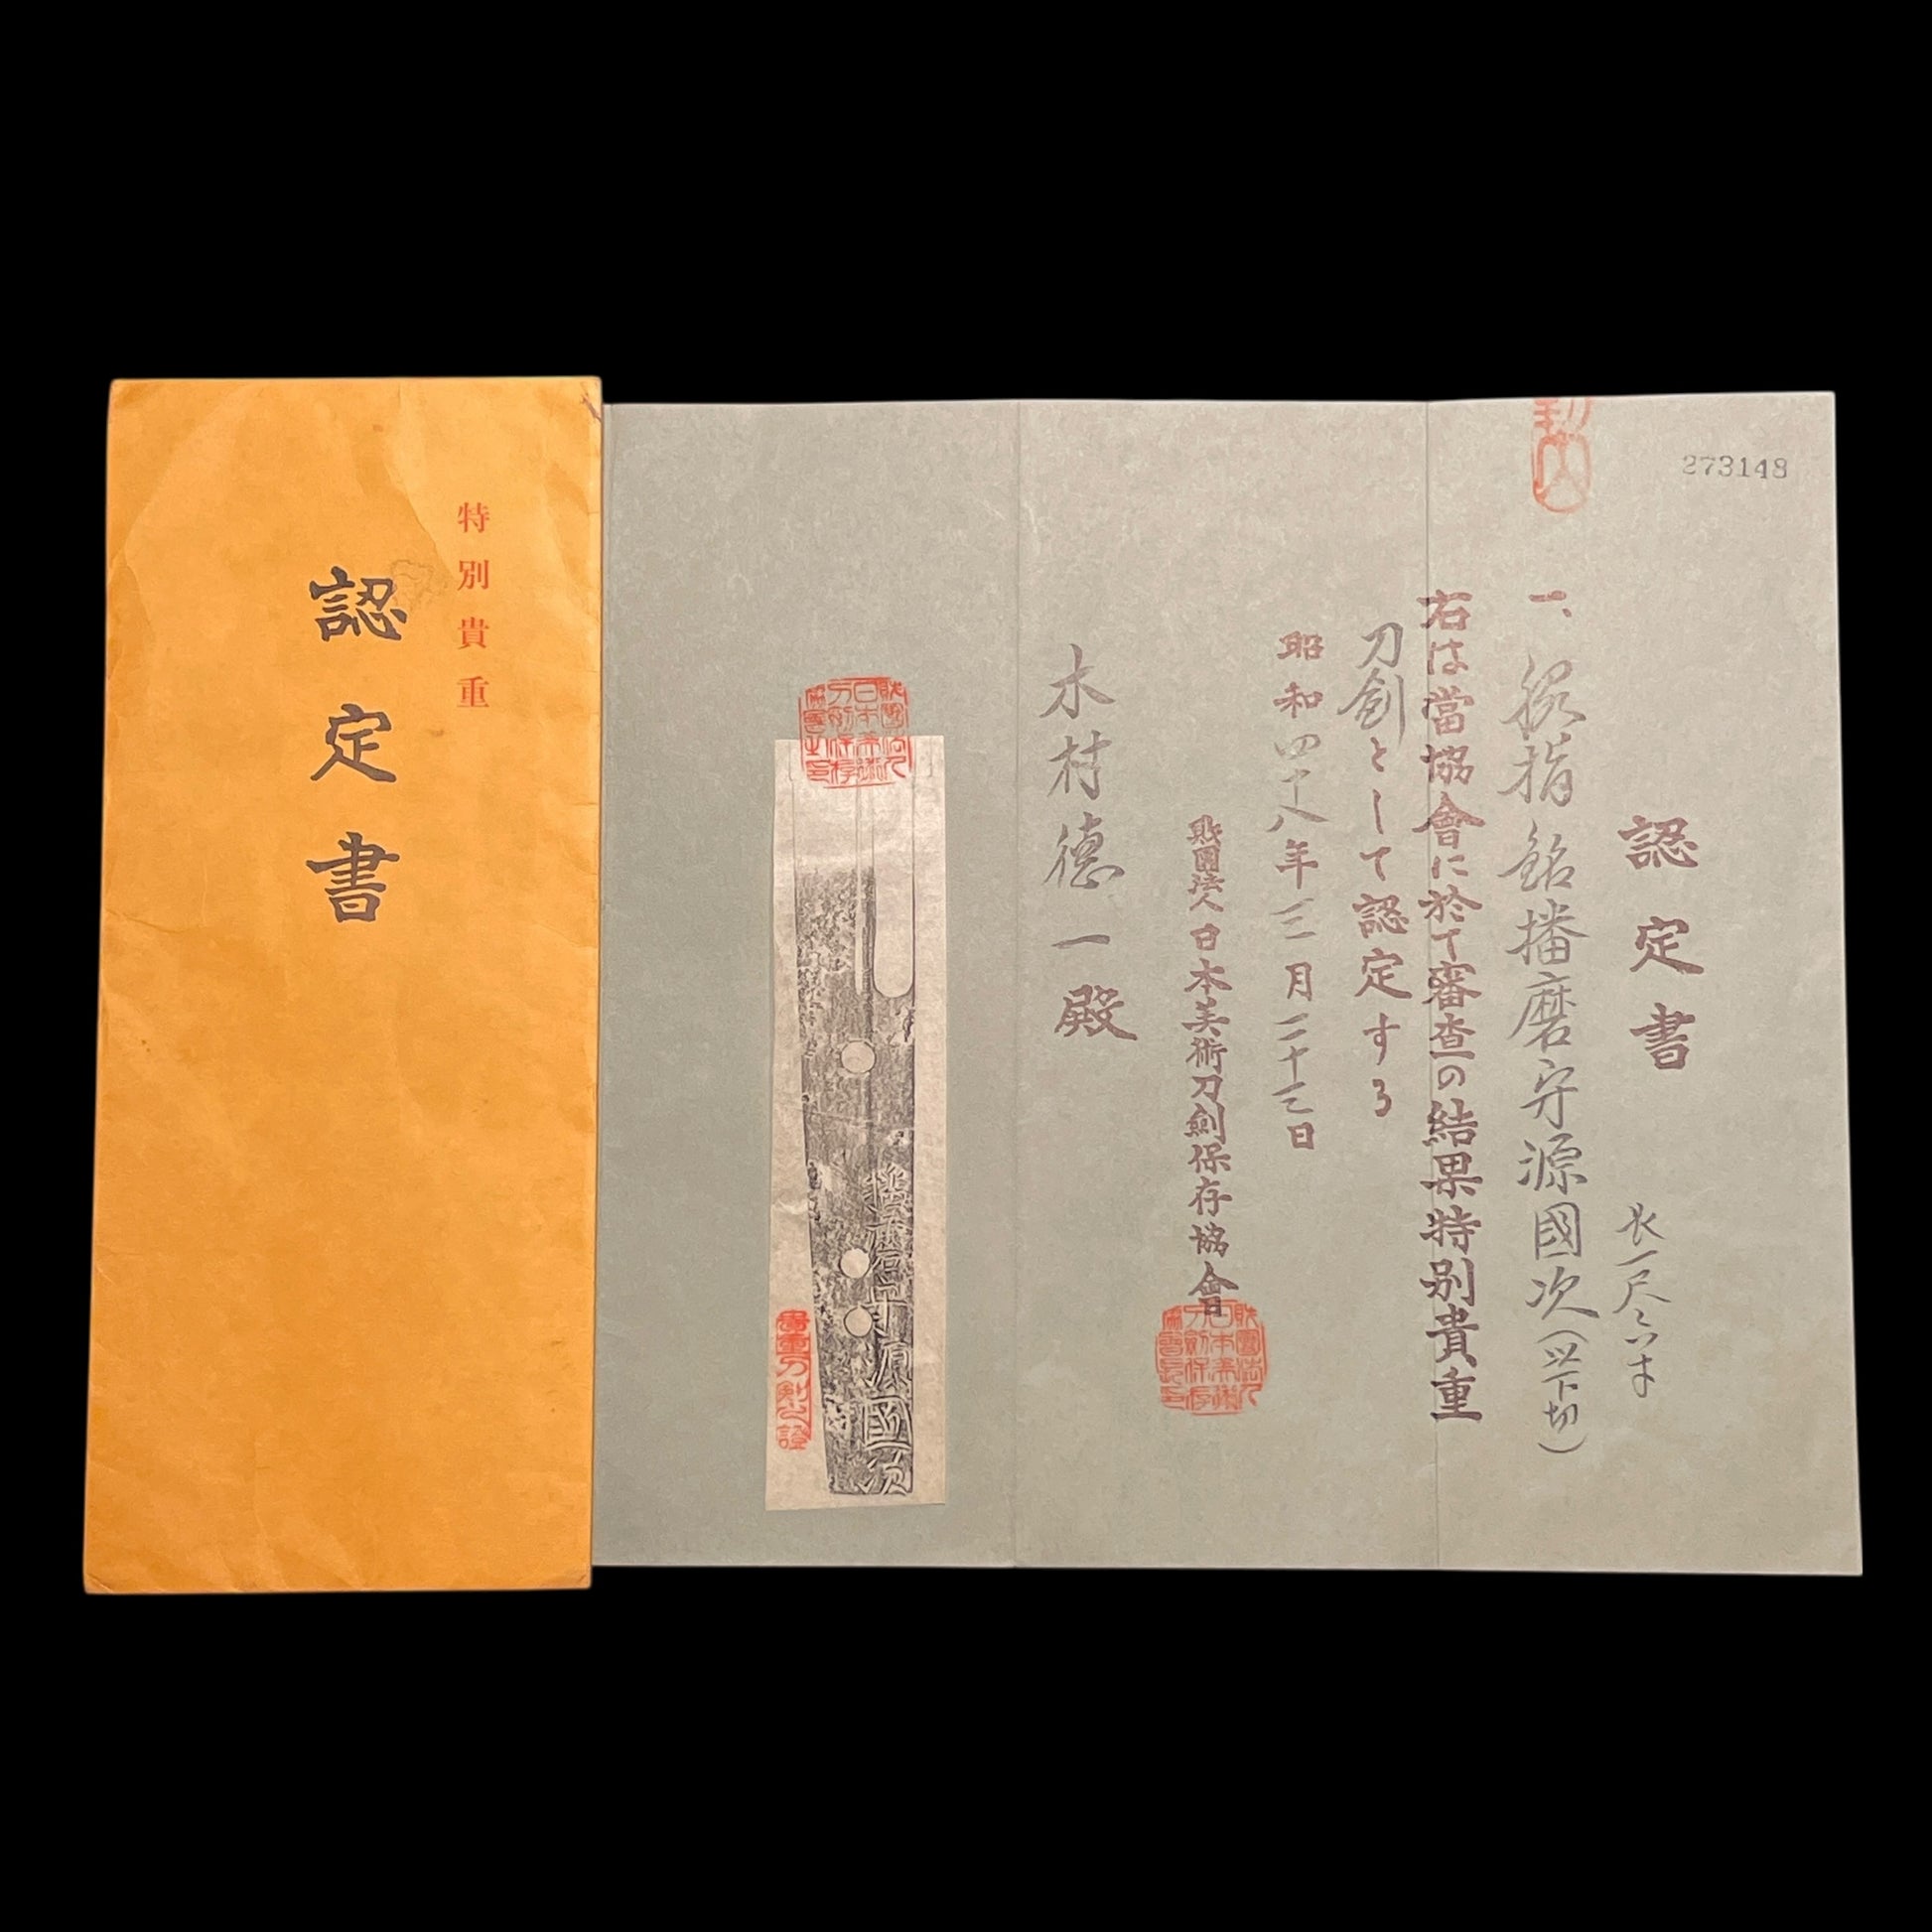 273148
認定書
長一尺
一、脇指 銘 播磨守源國次(以下切)
右は當協會に於て審査の結果特別貴重
刀剣として認定する
昭和四十八年三月二十三日
財團法人 日本美術刀劍保存協會
木村德一殿
播磨守源國次
特別貴重
認定書